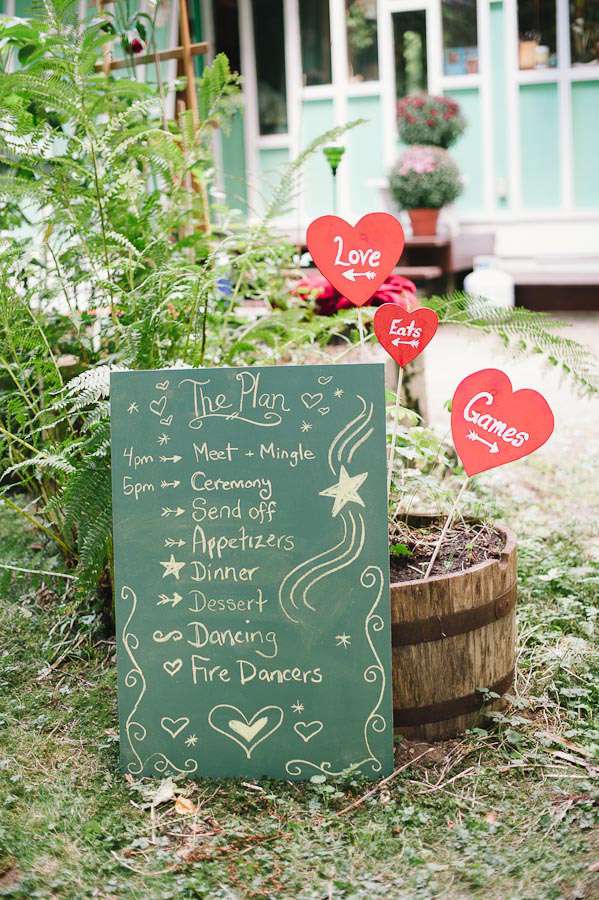 The Plan
4pm Meet + Mingle
5pm Ceremony
Send off
Appetizers
Dinner
Dessert
Dancing
Fire Dancers
Love
Eats
Games